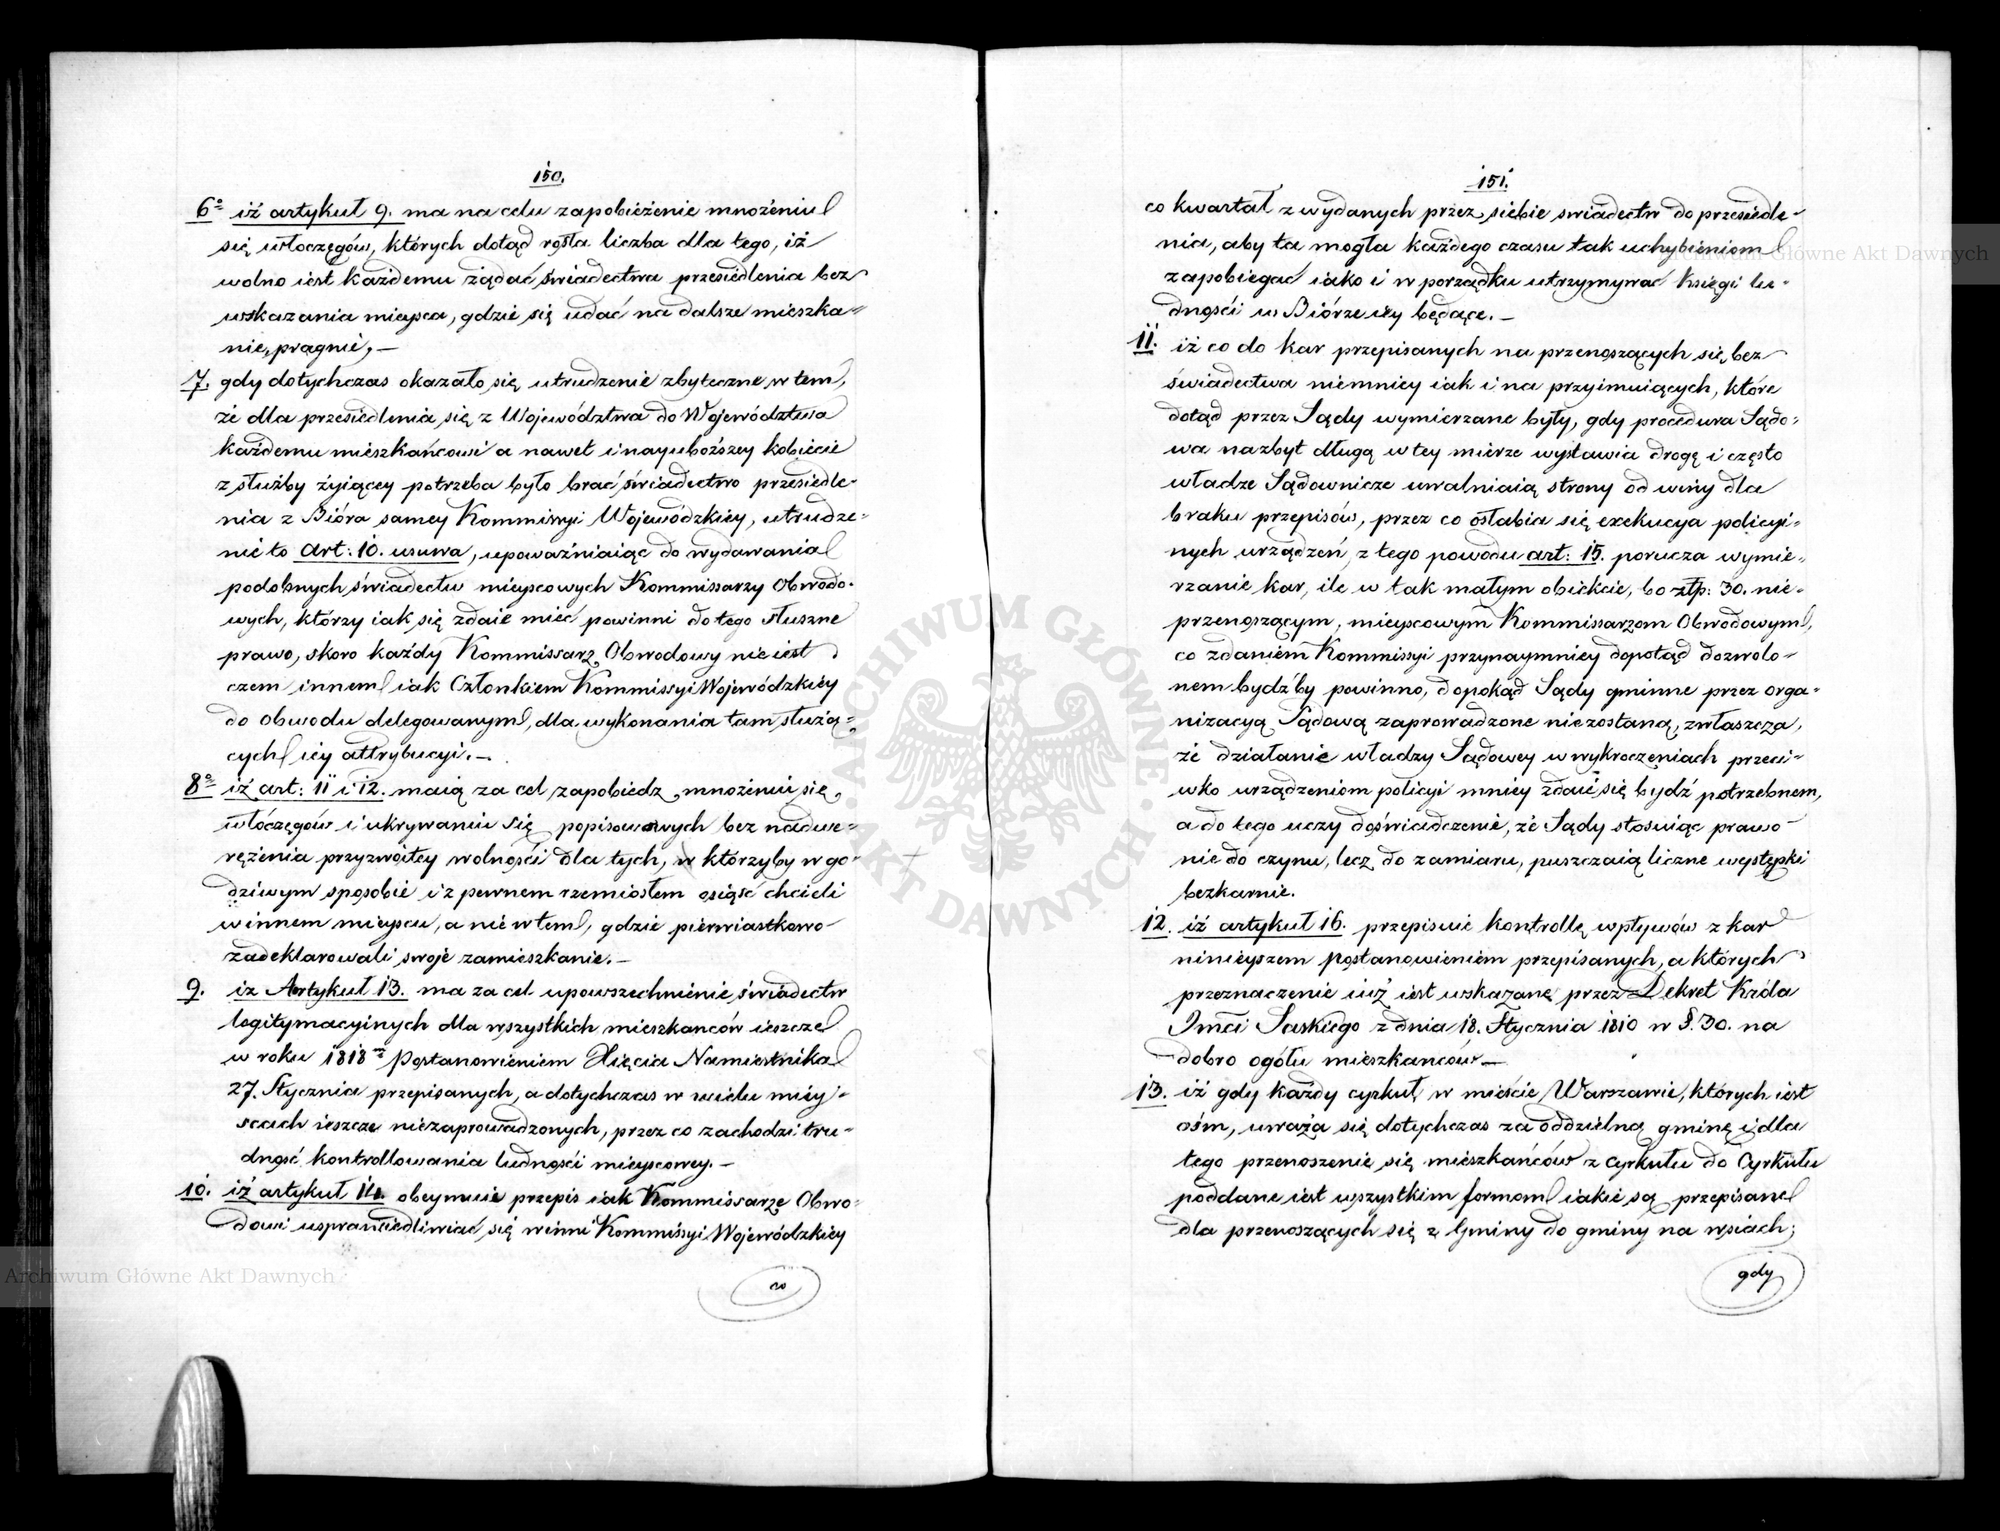 150.
6° iż artykuł 9. ma na celu zapobieżenie mnożeniu
się włoczęgów, których dotąd rosła liczba dla tego, iż
wolno iest każdemu żądać świadectwa przesiedlenia bez
wskazania mieysca, gdzie się udać na dalsze mieszka=
nie, pragnie, —
7. gdy dotychczas okazało się utrudzenie zbyteczne w tem,
że dla przesiedlenia się z Województwa do Województwa
każdemu mieszkańcowi a nawet i nayuboższey kobiecie
z służby żyiącey potrzeba było brać świadectwo przesiedle-
nia z Bióra samey Kommissyi Wojewódzkiey, utrudze-
nie to art: 10. usuwa, upoważniaiąc do wydawania
podobnych świadectw mieyscowych Kommissarzy Obwodo-
wych, którzy iak się zdaie mieć powinni do tego słuszne
prawo, skoro każdy Kommissarz Obwodowy nie iest
czem innem iak Członkiem Kommissyi Wojewódzkiey
do obwodu delegowanym, dla wykonania tam służą=
cych iey attrybucyi. —
8° iż art: 11 i 12. maią za cel zapobiedz mnożeniu się
włóczęgów i ukrywaniu się popisowych bez nadwe-
rężenia przyzwoitey wolności dla tych, w którzyby w go-
dziwym sposobie i z pewnem rzemiosłem osiąść chcieli
w innem mieyscu, a nie w tem, gdzie pierwiastkowo
zadeklarowali swoje zamieszkanie. —
9. iz Artykuł 13. ma za cel upowszechnienie świadectw
legitymacyinych dla wszystkich mieszkanców ieszcze
w roku 1818 m Postanowieniem Xięcia Namiestnika
27. Stycznia przepisanych, a dotychczas w wielu miey-
scach ieszcze niezaprowadzonych, przez co zachodzi tru-
dność kontrollowania ludności mieyscowey. —
10. iż artykuł 14. obeymuie przepis iak Kommissarze Obwo-
dowi usprawiedliwiać się winni Kommissyi Wojewódzkiey
co
151.
co kwartał z wydanych przez siebie swiadectw do przesiedle-
nia, aby ta mogła każdego czasu tak uchybieniom
zapobiegać iako i w porządku utrzymywać Księgi lu-
dności w Biórze iey będące. —
11. iż co do kar przepisanych na przenoszących się bez
świadectwa niemniey iak i na przyimuiących, które
dotąd przez Sądy wymierzane były, gdy procedura Sądo-
wa nazbyt długą w tey mierze wystawia drogę i często
władze Sądownicze uwalniaią strony od winy dla
braku przepisów, przez co osłabia się exekucya policyi-
nych urządzeń, z tego powodu art: 15. porucza wymie-
rzanie kar, ile w tak małym obiekcie, bo złp: 30. nie-
przenoszącym, mieyscowym Kommissarzom Obwodowym,
co zdaniem Kommissyi przynaymniey dopotąd dozwolo-
nem bydźby powinno, dopokąd Sądy gminne przez orga-
nizacyą Sądową zaprowadzone niezostaną, zwłaszcza,
że działanie władzy Sądowey w wykroczeniach przeci-
wko urządzeniom policyi mniey zdaie się bydź potrzebnem,
a do tego uczy doświadczenie, że Sądy stosuiąc prawo
nie do czynu, lecz do zamiaru, puszczaią liczne występki
bezkarnie.
12. iż artykuł 16. przepisuie kontrollę wpływów z kar
ninieyszem postanowieniem przepisanych, a których
przeznaczenie iuż iest wskazane przez Dekret Króla
Jmci Saskiego z dnia 18. Stycznia 1810 w §. 30. na
dobro ogółu mieszkanców —
13. iż gdy każdy cyrkuł w mieście Warszawie, których iest
ośm, uważa się dotychczas za oddzielną gminę i dla
tego przenoszenie się mieszkańców z Cyrkułu do Cyrkułu
poddane iest wszystkim formom iakie są przepisane
dla przenoszących się z Gminy do gminy na wsiach;
gdy
ARCHIWUM GŁÓWNE AKT DAWNYCH
Archiwum Główne Akt Dawnych
Archiwum Główne Akt Dawnych